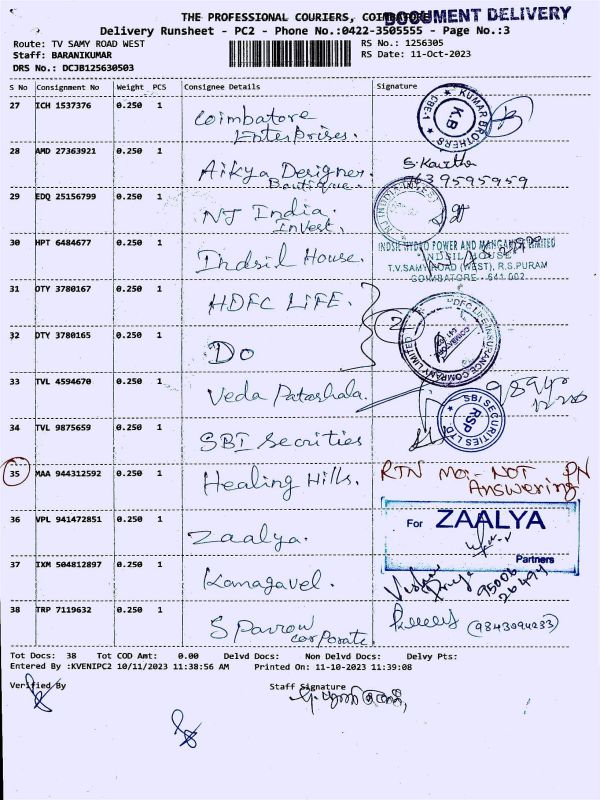 THE PROFESSIONAL COURIERS, COIMBATORE
DOCUMENT DELIVERY
Delivery Runsheet - PC2 - Phone No.:0422-3505555 - Page No.:3
Route: TV SAMY ROAD WEST RS No.: 1256305
Staff: BARANIKUMAR RS Date: 11-Oct-2023
DRS No.: DCJB125630503
S No Consignment No Weight PCS Consignee Details Signature
27 ICH 1537376 0.250 1 Coimbatore
Enterprises.
KUMAR BROTHERS CBE-1
K.B
28 AMD 27363921 0.250 1 Aikya Designer
Boutique.
S. Kavitha
7639595959
29 EDQ 25156799 0.250 1 NJ India
Invest.
30 HPT 6484677 0.250 1 Indsil House.
INDSIL HYDRO POWER AND MANGANESE LIMITED
"INDSIL HOUSE"
T.V.SAMY ROAD (WEST), R.S.PURAM
COIMBATORE - 641 002
31 DTY 3780167 0.250 1 HDFC LIFE.
32 DTY 3780165 0.250 1 Do
2
HDFC LIFE INSURANCE COMPANY LIMITED
33 TVL 4594670 0.250 1 Veda Patashala.
34 TVL 9875659 0.250 1 SBI Secrities
SBI SECURITIES LTD
RSP
35 MAA 944312592 0.250 1 Healing Hills.
RTN NOT PN
Answering
36 VPL 941472851 0.250 1 Zaalya.
For ZAALYA
Partners
37 IXM 504812897 0.250 1 Kamagavel.
Priya
95006
26494
38 TRP 7119632 0.250 1 Sparrow
corporate.
(9843094233)
Tot Docs: 38 Tot COD Amt: 0.00 Delvd Docs: Non Delvd Docs: Delvy Pts:
Entered By :KVENIPC2 10/11/2023 11:38:56 AM Printed On: 11-10-2023 11:39:08
Verified By Staff Signature